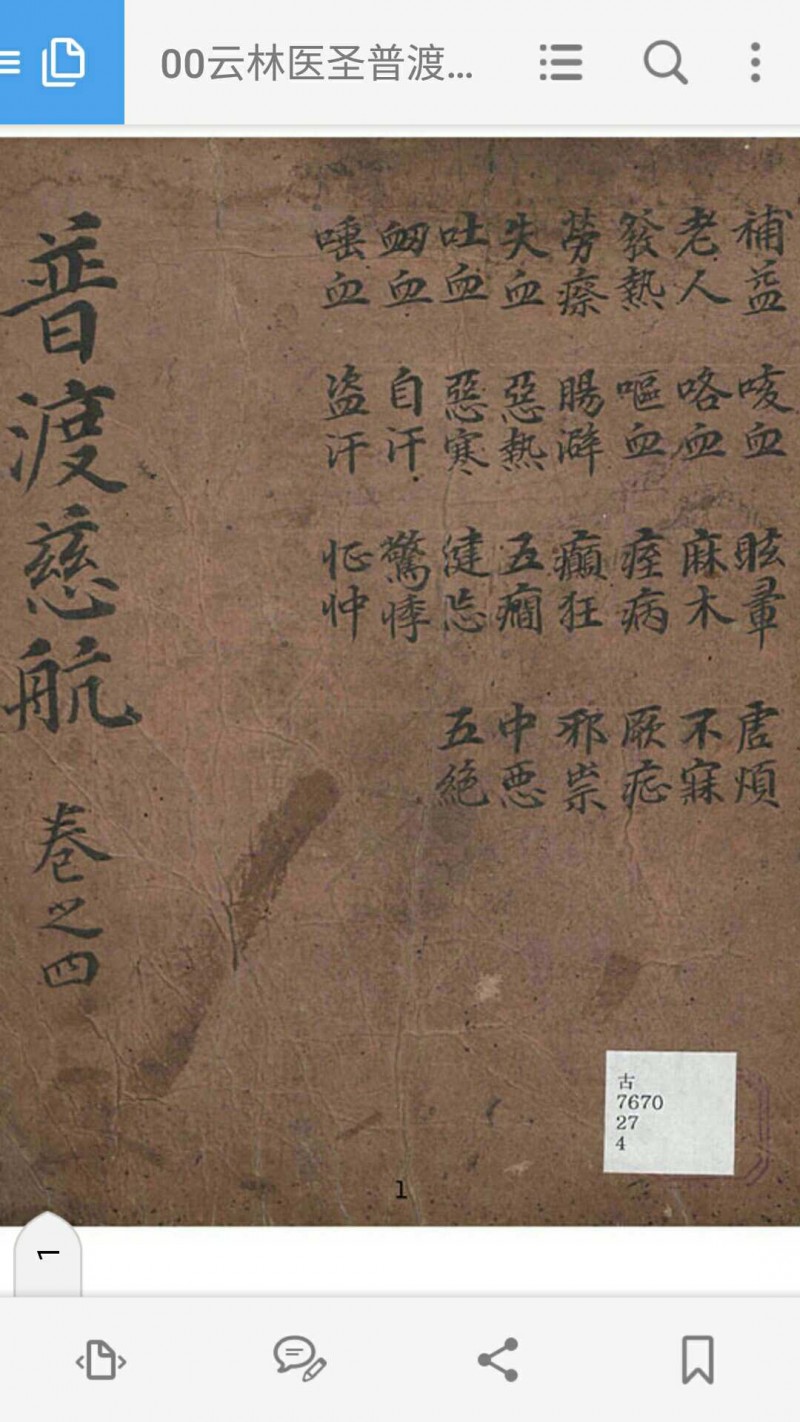 00云林医圣普渡...
補益 咳血 眩暈 虛煩
老人 咯血 麻木 不寐
發熱 嘔血 痓病 厥症
勞瘵 腸澼 癲狂 邪祟
失血 惡熱 五癇 中悪
吐血 惡寒 徤忘 五絶
衄血 自汗 驚悸
唾血 盗汗 怔忡
普渡慈航 卷之四
古
7670
27
4
1
1